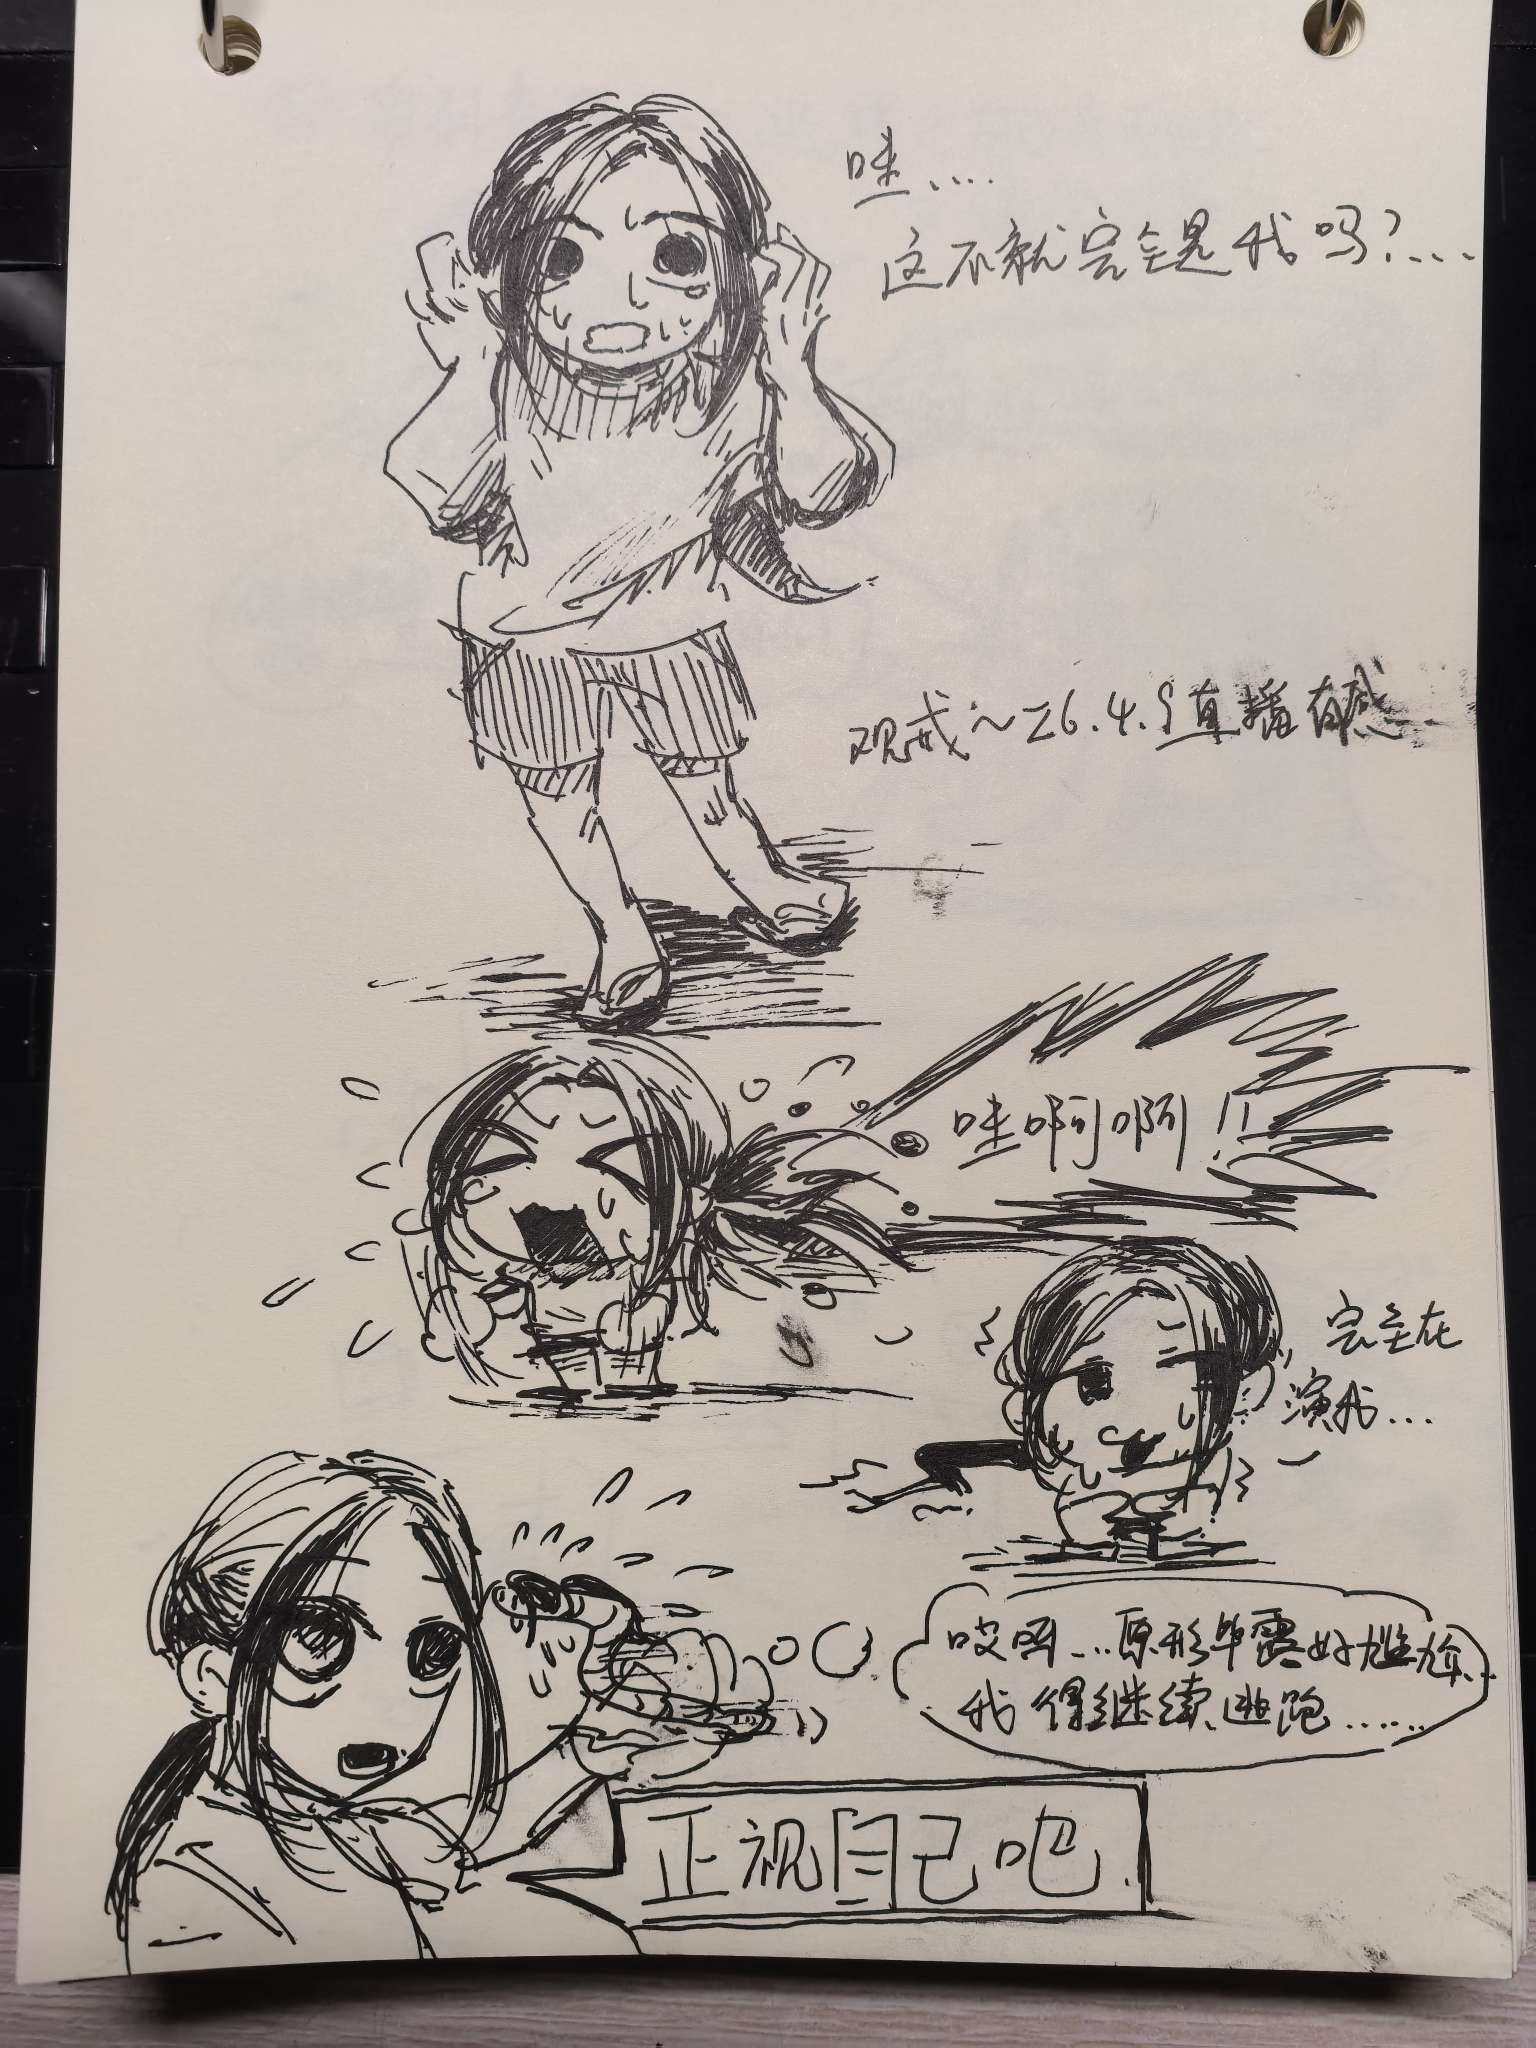 哇....
这不就完全是我吗?....
观戒~26.4.9直播有感
哇啊啊!!
完全在
演我...
哎呀...原形毕露好尴尬...
我得继续逃跑......
正视自己吧.